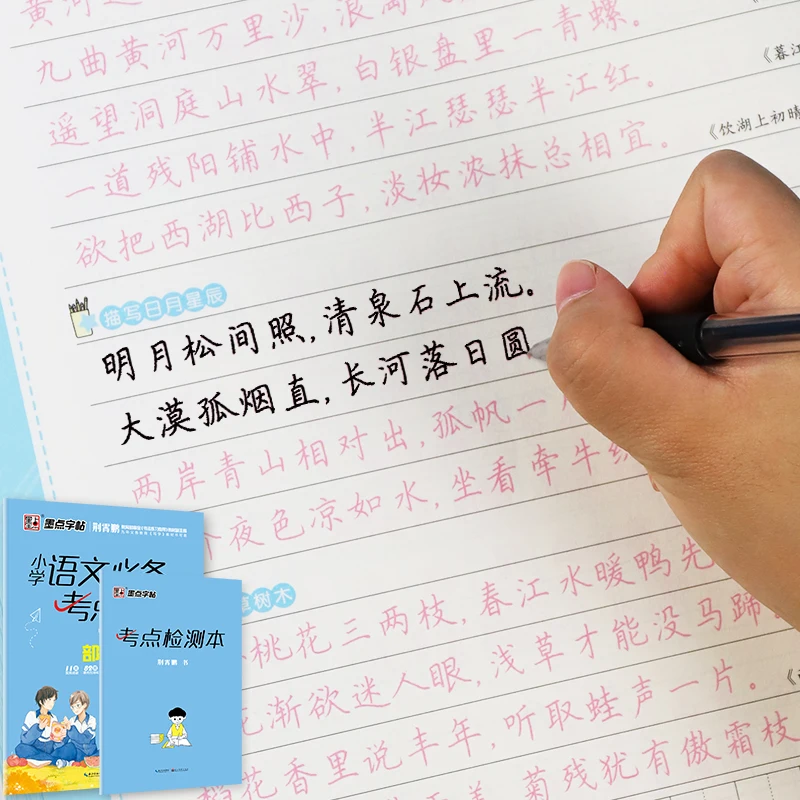 九曲黄河万里沙,浪淘
遥望洞庭山水翠,白银盘里一青螺。
《暮江
一道残阳铺水中,半江瑟瑟半江红。
《饮湖上初晴
欲把西湖比西子,淡妆浓抹总相宜。
描写日月星辰
明月松间照,清泉石上流。
大漠孤烟直,长河落日圆
两岸青山相对出,孤帆一
夜色凉如水,坐看牵牛
树木
桃花三两枝,春江水暖鸭先
花渐欲迷人眼,浅草才能没马蹄
稻花香里说丰年,听取蛙声一片。
菊残犹有傲霜枝
墨点字帖
荆霄鹏
小学语文必备
考点
部
110
墨点字帖
考点检测本
荆霄鹏 书